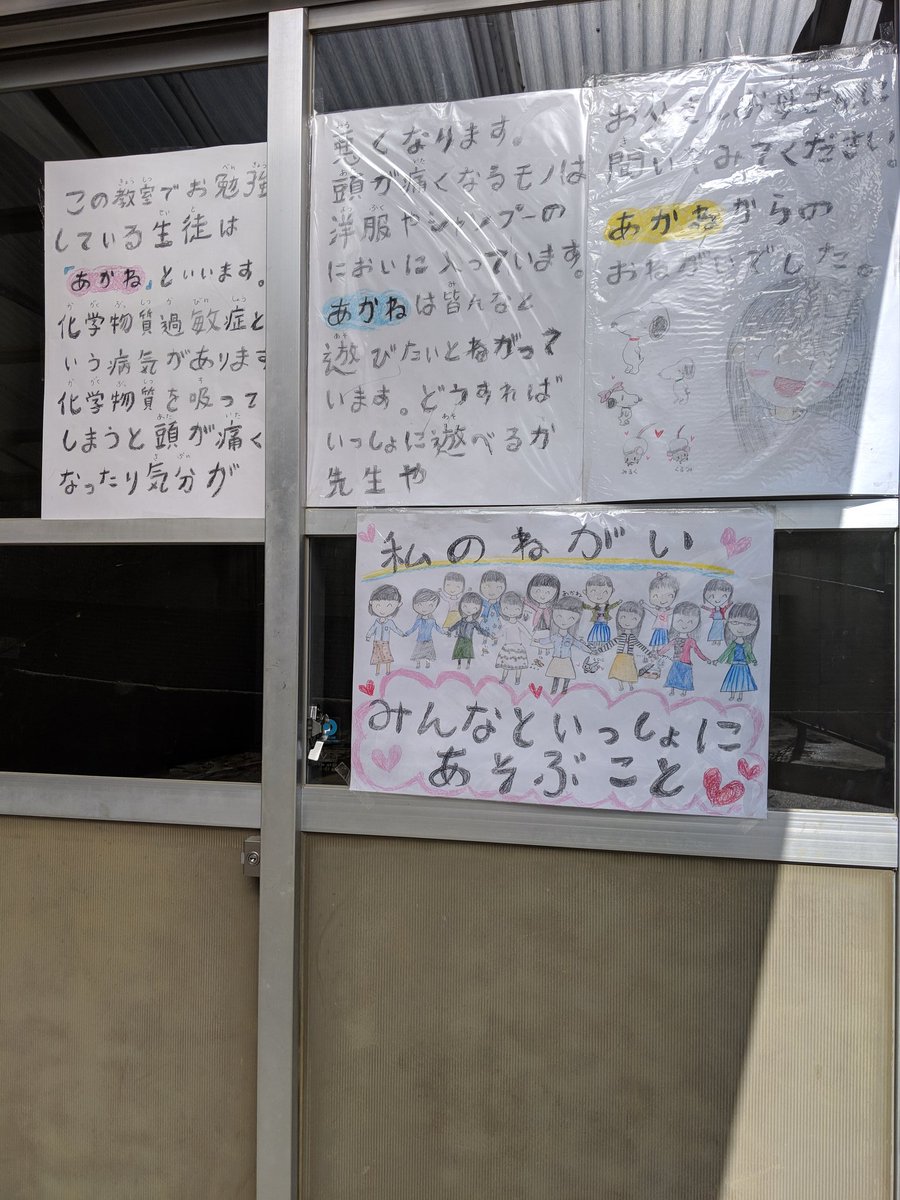 この教室でお勉強
している生徒は
「あかね」といいます。
化学物質過敏症と
いう病気があります
化学物質を吸って
しまうと頭が痛く
なったり気分が
悪くなります。
頭が痛くなるモノは
洋服やシャンプーの
においに入っています。
あかねは皆んなと
遊びたいとねがって
います。どうすれば
いっしょに遊べるか
先生や
お父さんお母さんに
聞いてみてください。
あかねからの
おねがいでした。
みるく
くるみ
私のねがい
あかね
みんなといっしょに
あそぶこと